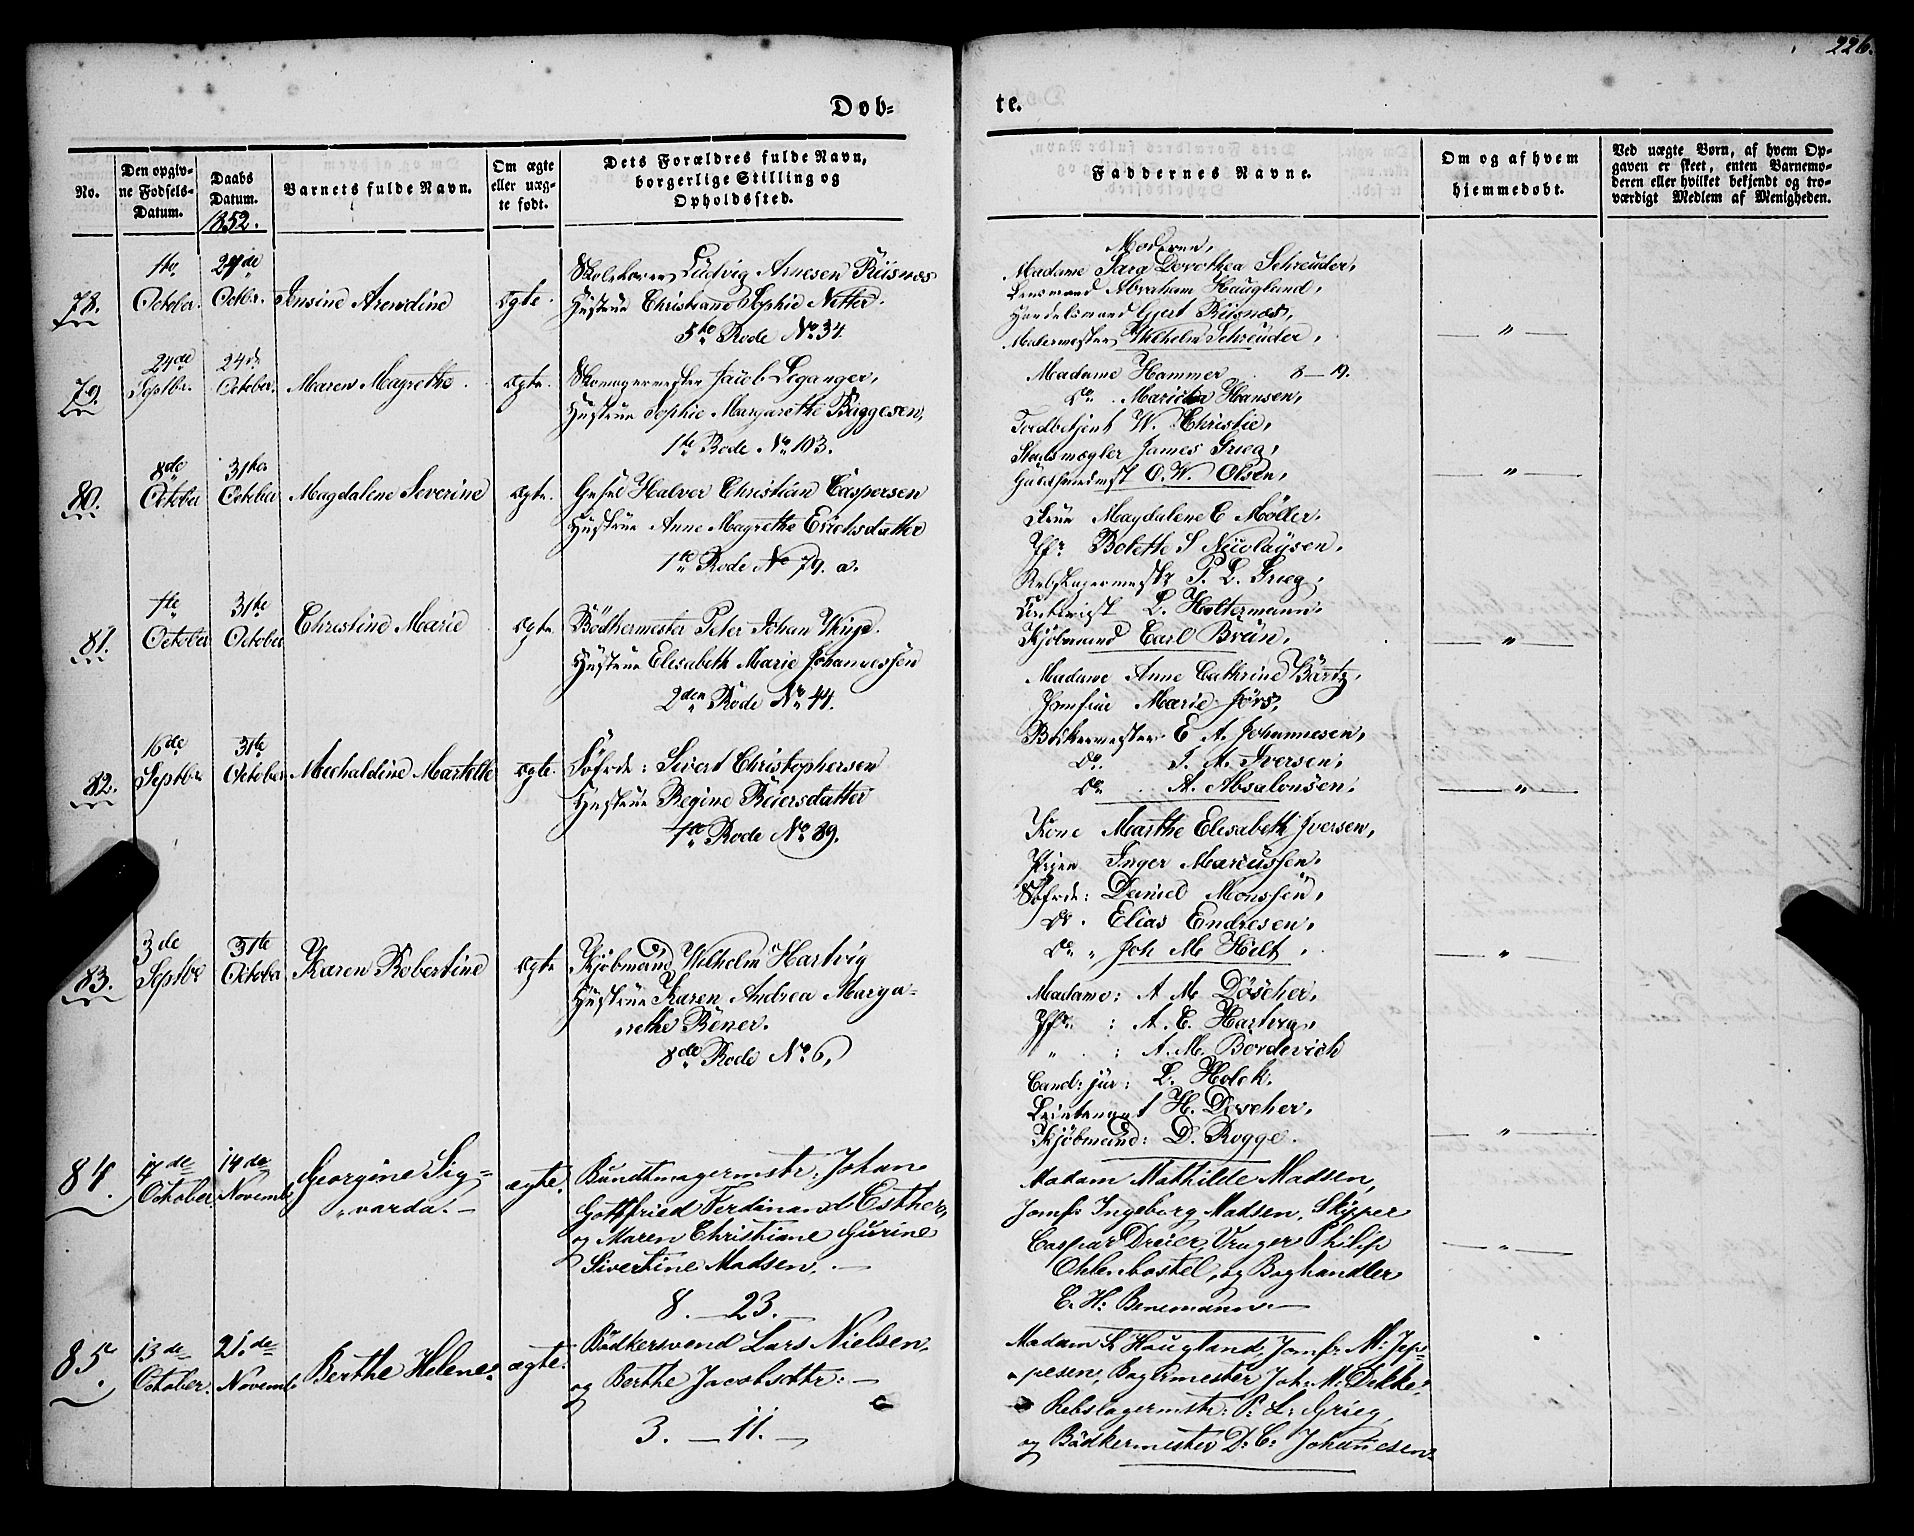 226.
Döb-
te.
No.
Den opgiv-
ne Födsels-
Datum.
Daabs
Datum.
1852.
Barnets fulde Navn.
Om ægte
eller uæg-
te födt.
Dets Forældres fulde Navn,
borgerlige Stilling og
Opholdssted.
Faddernes Navne.
Om og af hvem
hjemmedöbt.
Ved uægte Börn, af hvem Op-
gaven er skeet, enten Barnemo-
deren eller hvilket bekjendt og tro-
værdigt Medlem af Menigheden.
78.
1te
October.
24de
Octbr.
Jensine Arendine
ægte.
Ludvig Arnesen Riisnæs
Hustrue Christiane Sophie Netter.
5te Rode No 34.
Moderen,
Madame Sara Dorothea Schreuder,
Lensmand Abraham Haugland,
Handelsmand Gjert Riisnæs,
Malermester Wilhelm Schreuder,
"
79.
24de
Septbr.
24de
October.
Maren Magrethe.
ægte.
Skomagermester Jacob Leganger,
Hustrue Sophie Margarethe Buggesen,
1te Rode No 103.
Madame Hammer 8-19.
Do. Hansen,
Toldbetjent W. Christie,
Skibsmægler James Grieg,
O. W. Olsen,
"
80.
8de
October
31te
October
Magdalene Severine
ægte.
Halver Christian Caspersen
Hustrue Anne Magrethe Erichsdatter
1te Rode No 79. a.
Frue Magdalene C Möller.
Jfr Bolette S Nicolaysen.
Rebslagermestr P. L. Grieg,
L. Holtermann.
Kjöbmand Carl Brun,
"
81.
1te
October
31te
October
Christine Marie
ægte
Bödkermester Peter Johan
Hustrue Elisabeth Marie Johannessen
2den Rode No 44.
Madame Anne Cathrine Bärtz,
Jomfrue Marie Jörs,
E. A. Johannesen,
Do. T. M. Iversen,
Do. A. Absalonsen,
"
82.
16de
Septbr
31te
October
Mechaldine Martelle
ægte.
Söfrde: Sivert Christophersen
Hustrue Regine Beiersdatter
1te Rode No 89.
Kone Marthe Elisabeth Iversen,
Pigen Inger Marcussen.
Söfrde: Daniel Monssen,
Do. Elias Endresen,
Do " Joh M. Hilt,
"
83.
3de
Septbr
31te
October
Karen Robertine
ægte
Kjöbmand Wilhelm Hartvig
Hustrue Karen Andrea Marga-
rethe Bener.
8de Rode No 6,
Madame: A. M. Döscher,
Jfr: A. E. Hartvig,
" : A. M. Bordevich
Cand: jur: L. Holck.
Lieutenant H. Doscher,
Kjöbmand: D. Rogge.
"
84.
17de
October.
14de
Novemb.
Georgine Sig-
varda. -
ægte.
Bundtmagermstr: Johan
Gottfried Ferdinand Esther,
og Maren Christiane Gurine
Sivertine Madsen. -
8. - 23.
Madam Mathilde Madsen,
Jomfr Ingeborg Madsen, Skipper
Caspar Dreier, Vrager Philip
Ohlenbostel, og Boghandler
C. H: Benemann. -
"
85.
13de
October.
21de
Novemb.
Berthe Helene.
ægte.
Bödkersvend Lars Nielsen,
og Berthe Jacobsdtr: -
3. - 11. -
Madam Haugland, Jomfr: M: Jep-
pesen, Bagermester Joh: M: Dekke,
Rebslagermstr: P: L: Grieg,
og Bödkermester D: C: Johannesen.